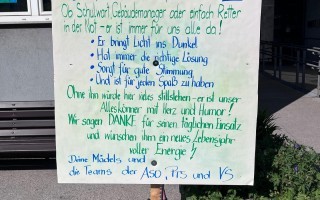 Ob Schulwart, Gebäudemanager oder einfach Retter
in der Not - er ist immer für uns alle da!
• Er bringt Licht ins Dunkel
• Hat immer die richtige Lösung
• Sorgt für gute Stimmung
• Und ist für jeden Spaß zu haben
Ohne ihn würde hier vieles stillstehen - er ist unser
Alleskönner mit Herz und Humor!
Wir sagen DANKE für seinen täglichen Einsatz
und wünschen ihm ein neues Lebensjahr
voller Energie
Deine Mädels und
die Teams der ASO, und VS